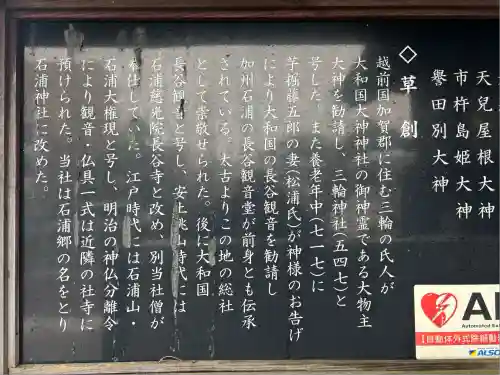 天兒屋根大神
市杵島姫大神
譽田別大神
◇草創
越前国加賀郡に住む三輪の氏人が
大和国大神神社の御神霊である大物主
大神を勧請し、三輪神社(五四七)と
号した。また養老年中(七一七)に
芋掘藤五郎の妻(松浦氏)が神様のお告げ
により大和国の長谷観音を勧請し
加州石浦の長谷観音堂が前身とも伝承
されている。太古よりこの地の総社
として崇敬せられた。後に大和国
長谷観音と号し、安土桃山時代には
石浦慈光院長谷寺と改め、別当社僧が
奉仕していた。江戸時代には石浦山・
石浦大権現と号し、明治の神仏分離令
により観音・仏具一式は近隣の社寺に
預けられた。当社は石浦郷の名をとり
石浦神社に改めた。
AE
Automated Ex
自動体外式除細動
ALSO